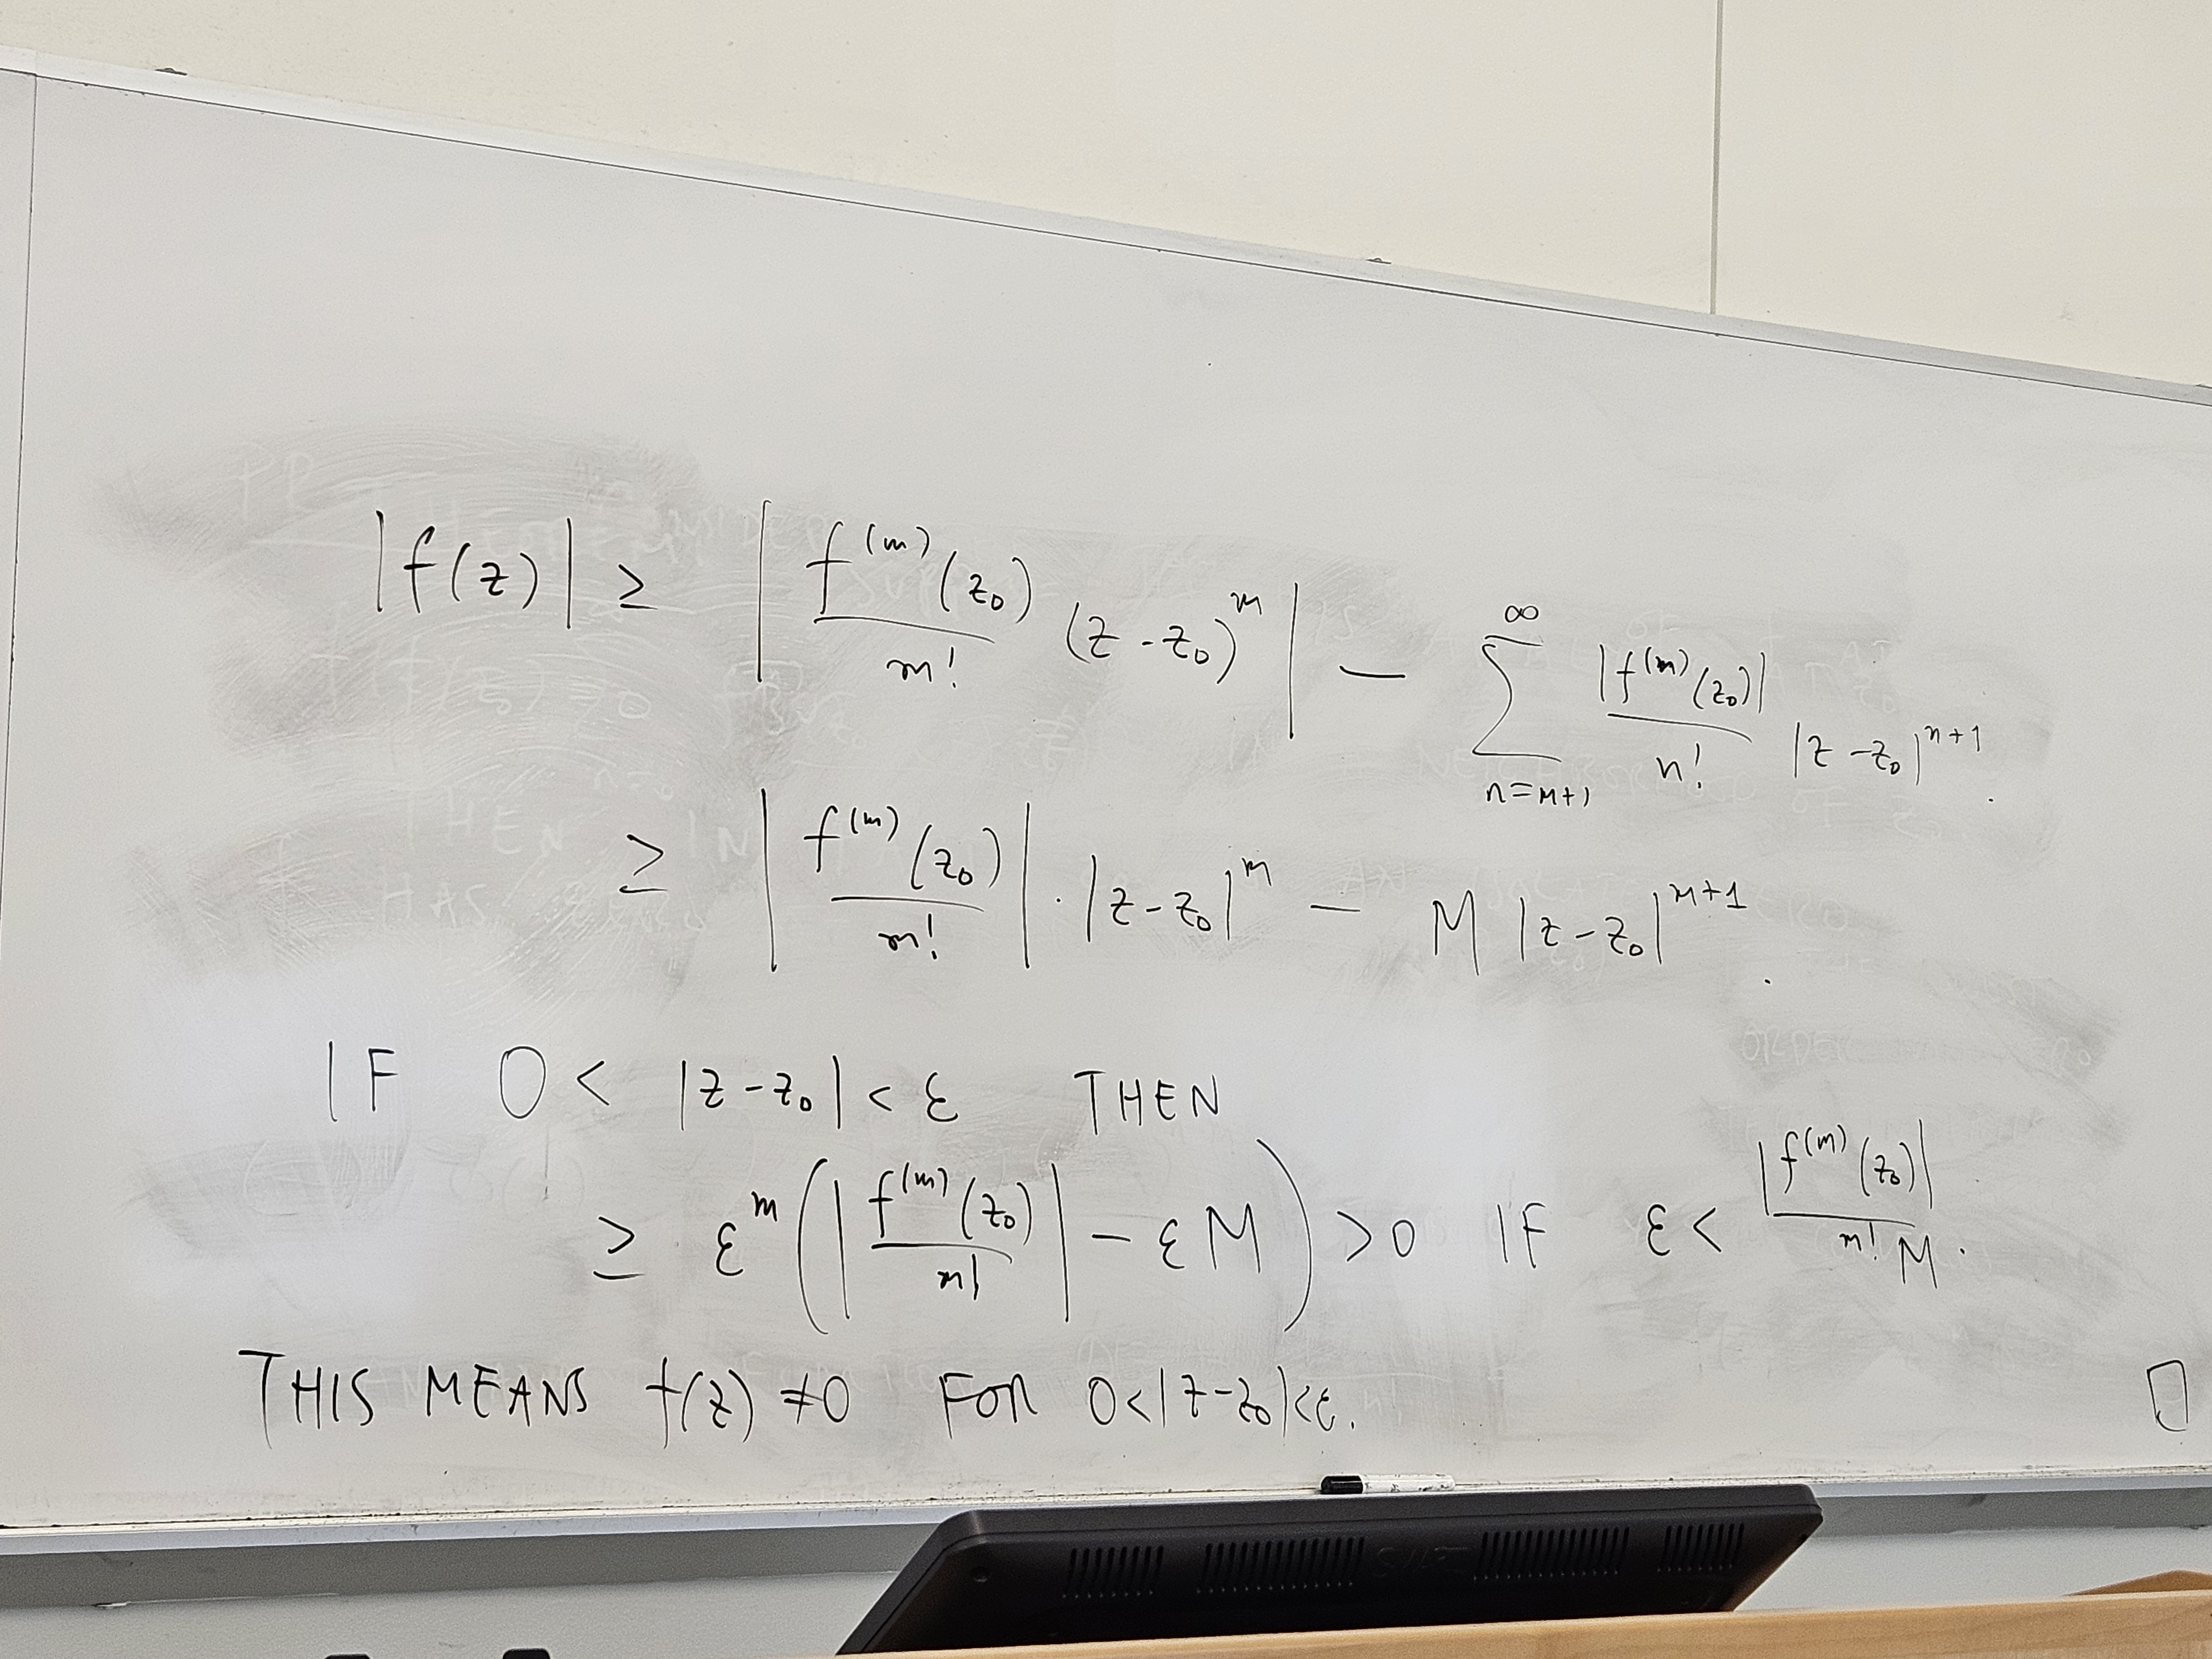 |f(z)| ≥ | f^{(m)}(z_0) / m! (z - z_0)^m | - ∑_{n=m+1}^{∞} |f^{(m)}(z_0)| / n! |z - z_0|^{n+1}.
≥ | f^{(m)}(z_0) / m! | · |z - z_0|^m - M |z - z_0|^{m+1}.
IF 0 < |z - z_0| < ε THEN
≥ ε^m ( | f^{(m)}(z_0) / m! | - ε M ) > 0 IF ε < |f^{(m)}(z_0)| / m! M.
THIS MEANS f(z) ≠ 0 FOR 0 < |z - z_0| < ε. □